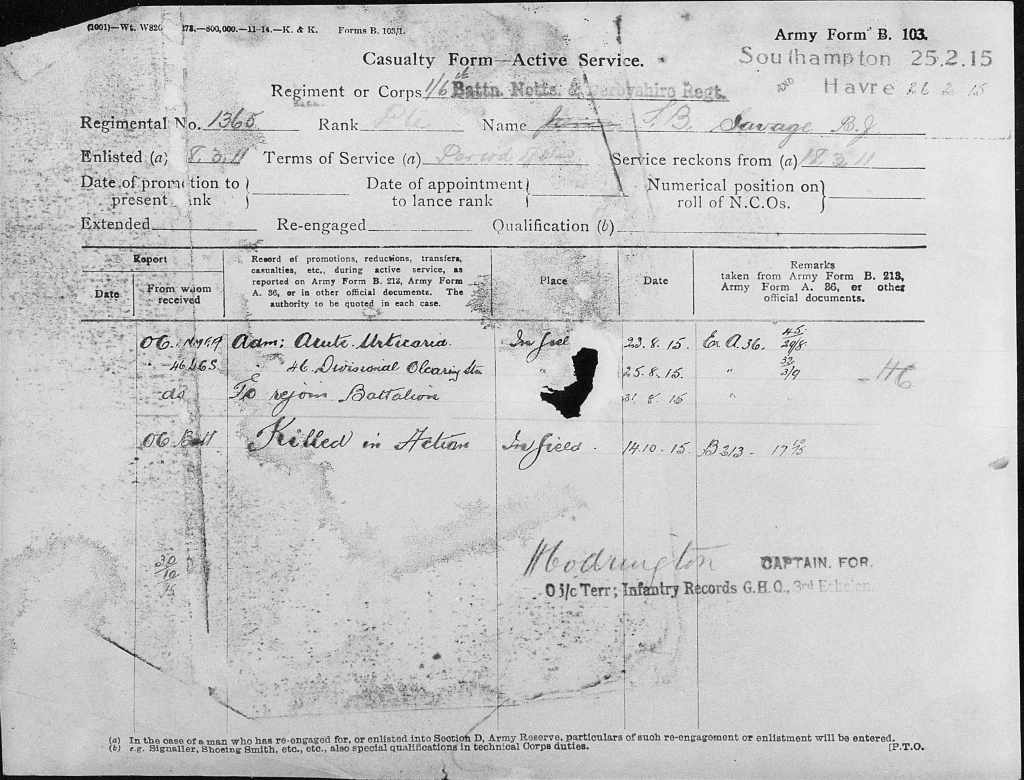 (1001)—Wt. W820 273.—800,000.—11-14.—K. & K. Forms B. 103/1.
Army Form B. 103.
Casualty Form—Active Service.
Southampton 25.2.15
AND Havre 26 2 15
Regiment or Corps 1/6th Battn. Notts. & Derbyshire Regt.
Regimental No. 1365 Rank Pte Name S.B. Savage
Enlisted (a) 18.3.11 Terms of Service (a) Period Service reckons from (a) 18 3 11
Date of promotion to present rank
Date of appointment to lance rank
Numerical position on roll of N.C.Os.
Extended Re-engaged Qualification (b)
Report
Date
From whom received
Record of promotions, reductions, transfers, casualties, etc., during active service, as reported on Army Form B. 213, Army Form A. 36, or in other official documents. The authority to be quoted in each case.
Place
Date
Remarks
taken from Army Form B. 213, Army Form A. 36, or other official documents.
OC. Adm; Acute Urticaria. In Fiel 23.8.15. A.36. 45 29/8
46 46 Divisional Clearing Stn " 25.8.15. " 32 3/9
do To rejoin Battalion 31 8 15 " 46
OC Batt Killed in Action In field. 14.10.15. B 213 - 17
30
10
15
CAPTAIN. FOR.
O i/c Terr; Infantry Records G.H.Q., 3rd Echelon.
(a) In the case of a man who has re-engaged for, or enlisted into Section D, Army Reserve, particulars of such re-engagement or enlistment will be entered.
(b) e.g. Signaller, Shoeing Smith, etc., etc., also special qualifications in technical Corps duties. [P.T.O.